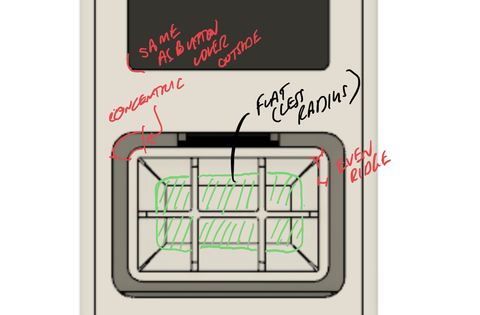 SAME
AS BUTTON
COVER
OUTSIDE
CONCENTRIC
FLAT
(LESS
RADIUS)
EVEN
RIDGE